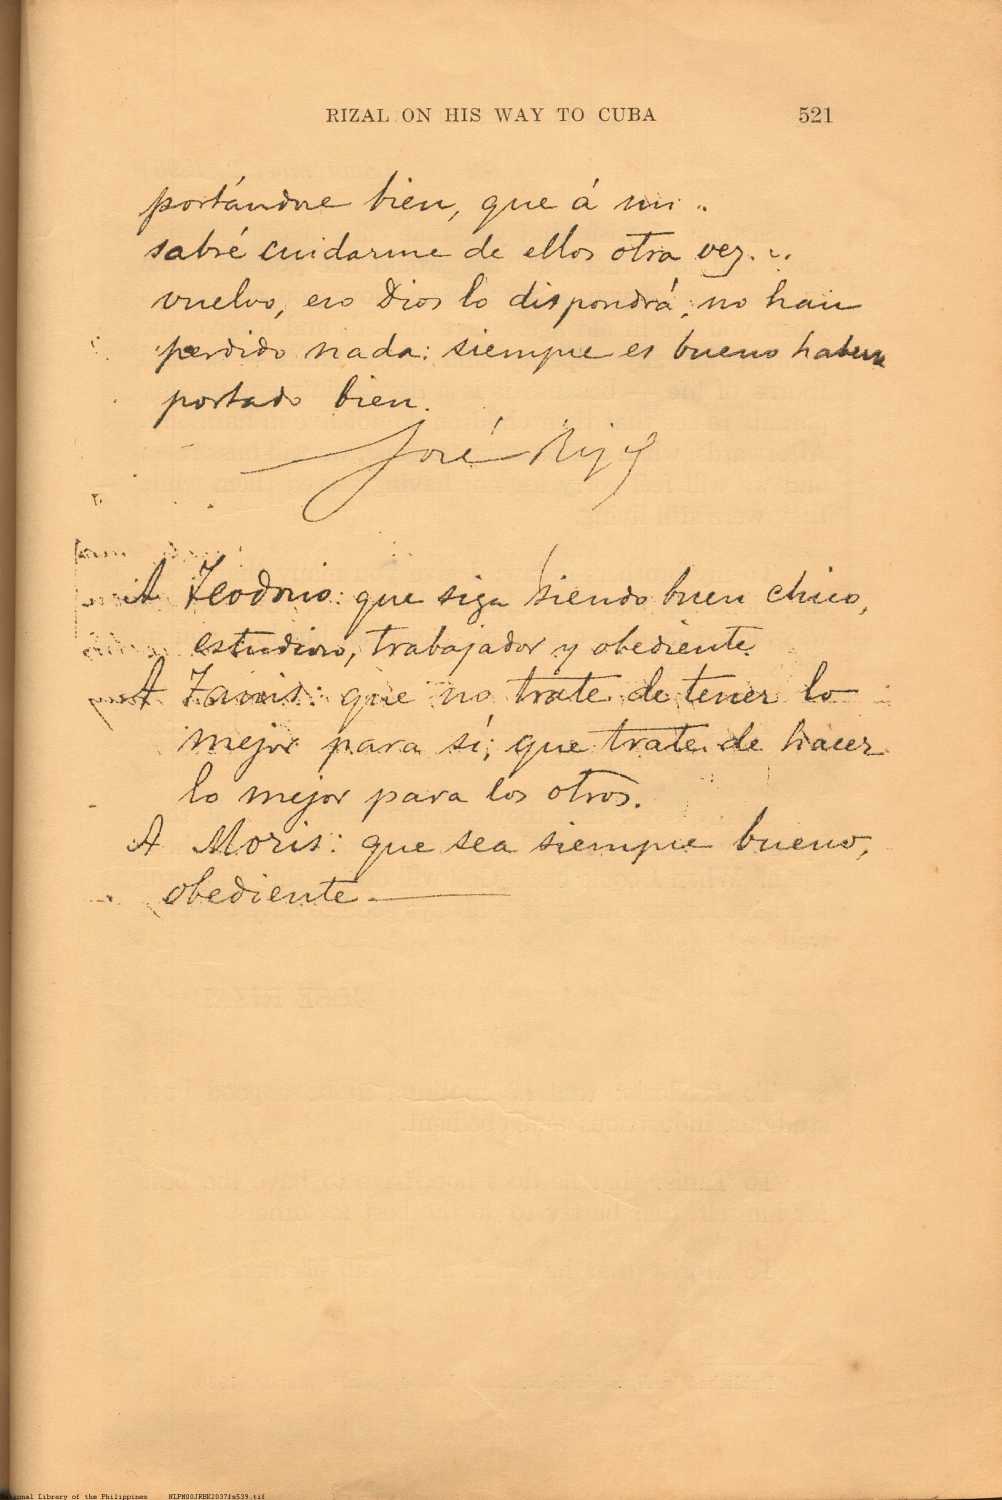 RIZAL ON HIS WAY TO CUBA 521
portándose bien, que á mi
sabré cuidarme de ellos otra vez.
vuelvo, eso Dios lo dispondrá; no han
perdido nada: siempre es bueno haberse
portado bien.
José Rizal
A Teodosio: que siga siendo buen chico,
estudioso, trabajador y obediente.
A Tanis: que no trate de tener lo
mejor para sí; que trate de hacer
lo mejor para los otros.
A Moris: que sea siempre bueno,
obediente.
National Library of the Philippines NLPN00JRBK2037fs539.tif